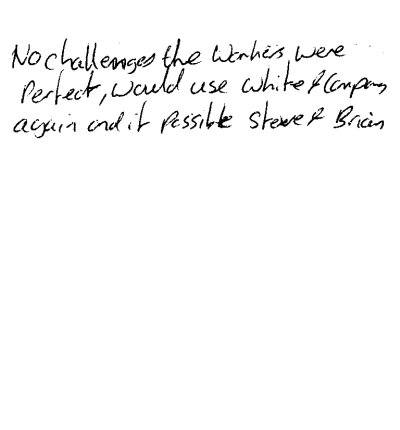 No challenges the workers were
Perfect, would use White & Company
again and if possible Steve & Brian